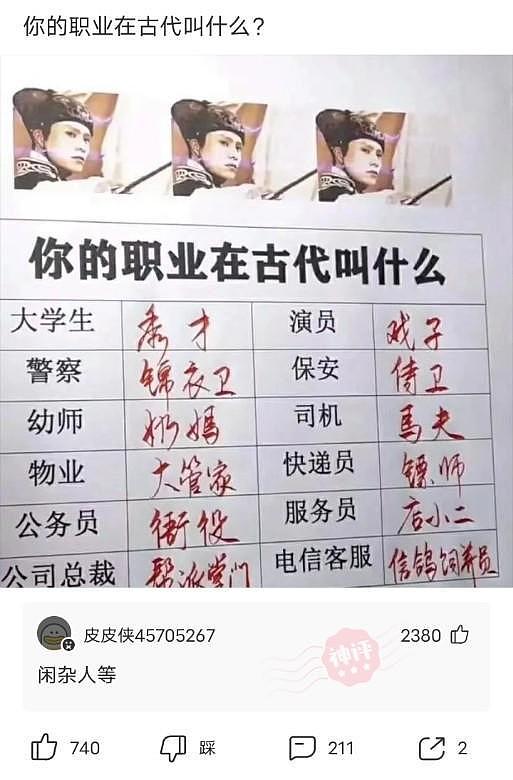 你的职业在古代叫什么?
你的职业在古代叫什么
大学生 秀才 演员 戏子
警察 锦衣卫 保安 侍卫
幼师 奶媽 司机 馬夫
物业 大管家 快递员 镖师
公务员 衙役 服务员 店小二
公司总裁 帮派掌门 电信客服 信鸽饲养员
皮皮侠45705267 2380
神评
闲杂人等
740 踩 211 2